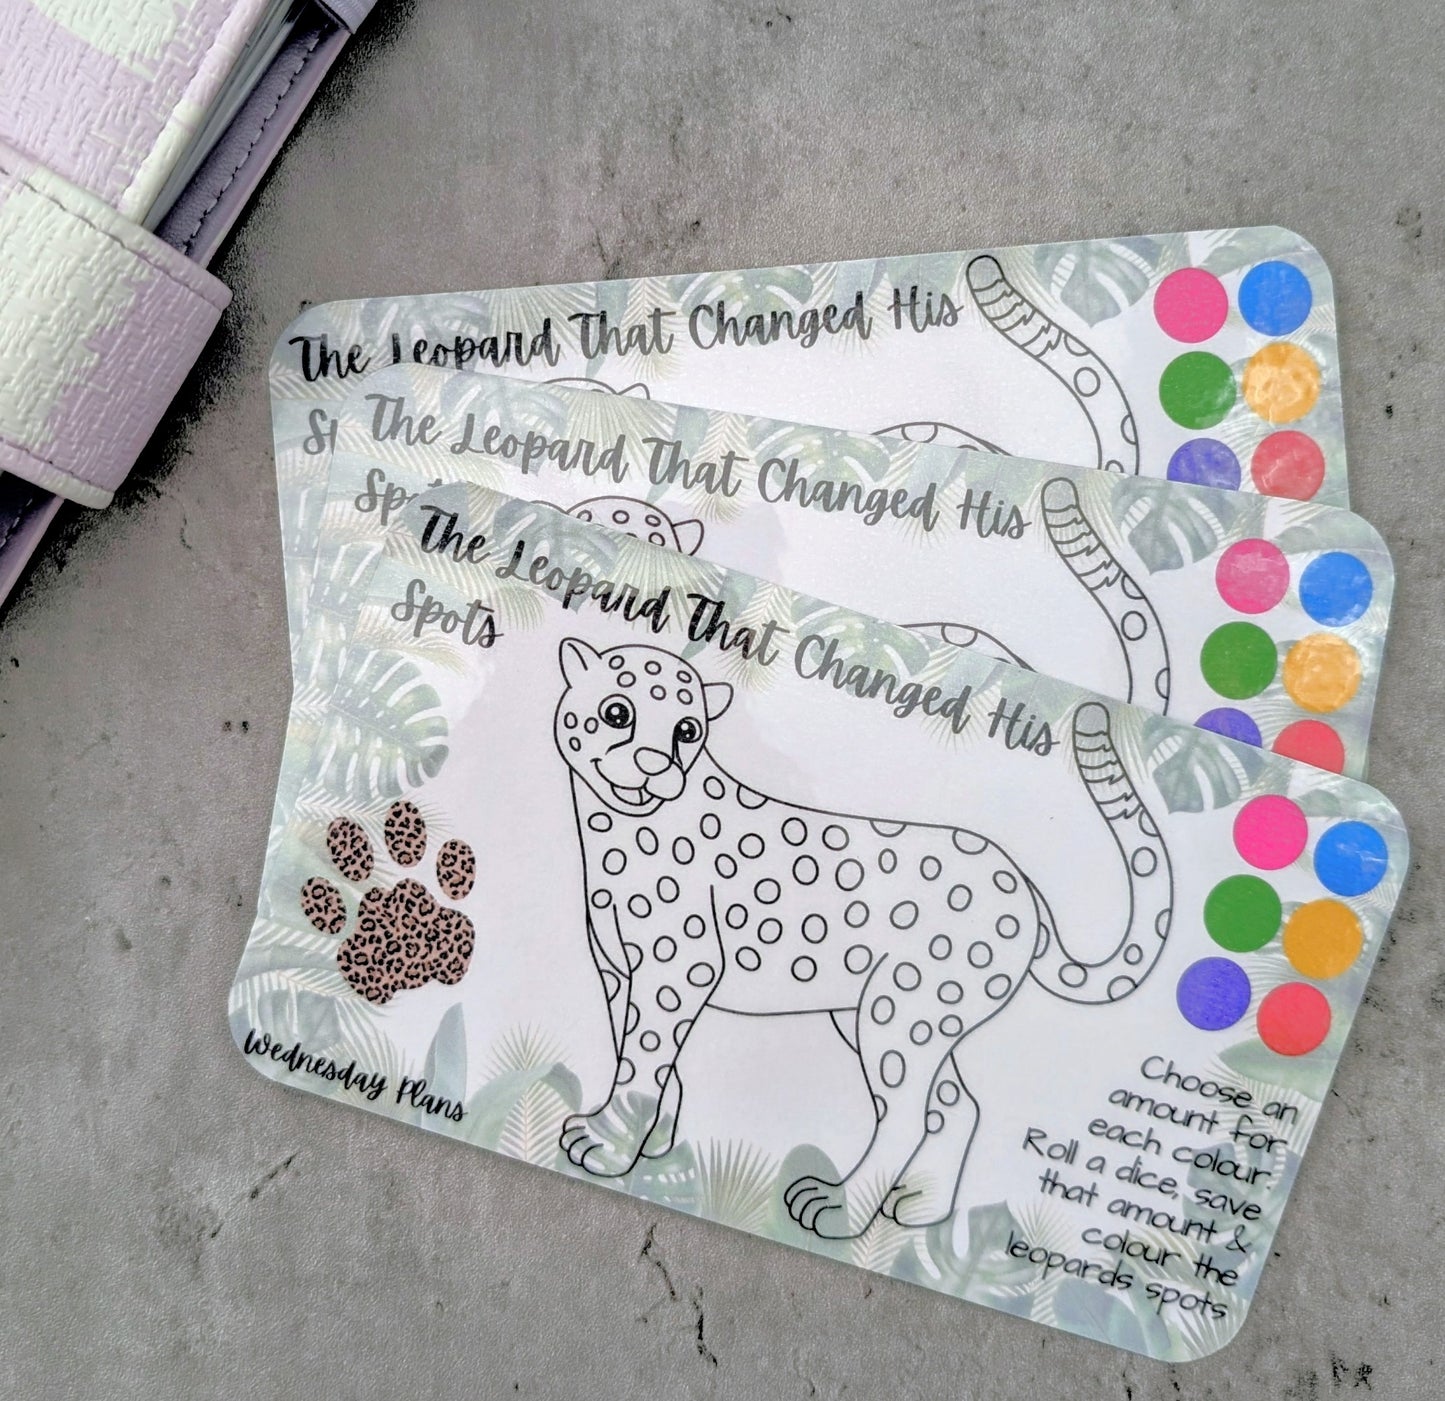 The Leopard That Changed His
The Leopard That Changed His
The Leopard That Changed His
Spots
Wednesday Plans
Choose an
amount for
each colour.
Roll a dice, save
that amount &
colour the
leopards spots